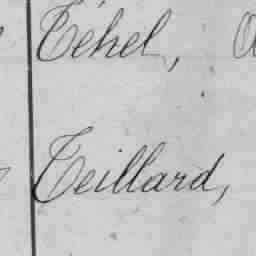 Téhel,
Teillard,